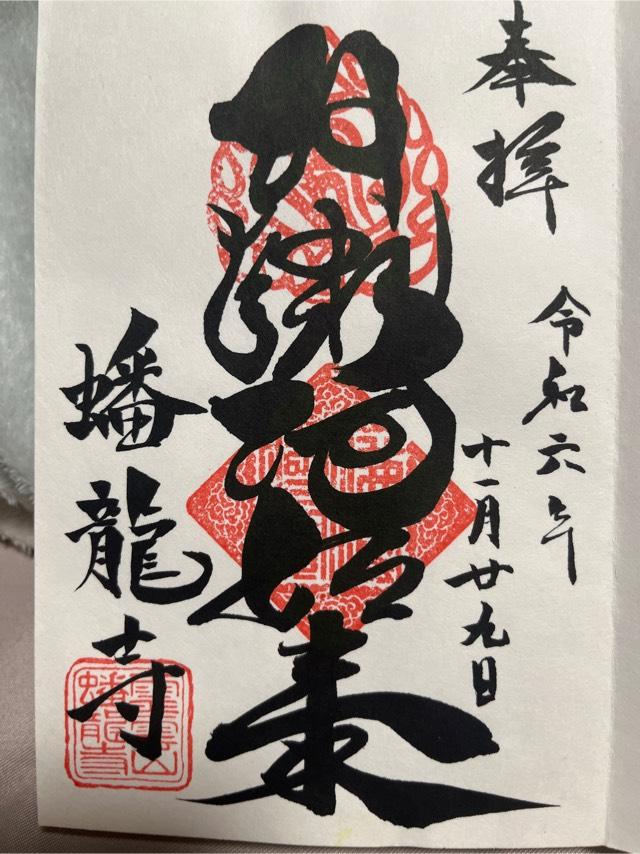 奉拝
令和六年
十一月廿九日
阿彌陀如来
蟠龍寺
靈雲山
蟠龍寺